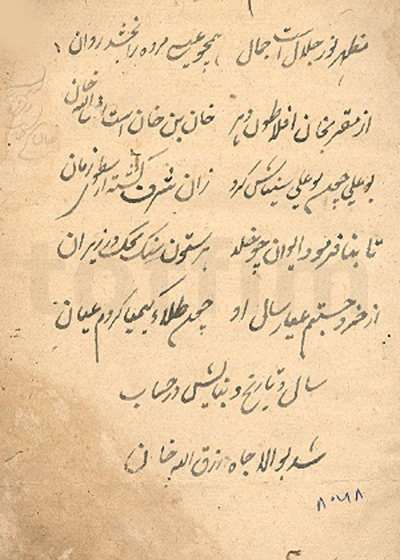 مظهر نور جلال است جمال همچو عیسی مرده را بخشد روان
از مقربخان افلاطون دهر خان بن خان است رزق الله خان
بوعلی چون بوعلی سینایش کرد زان شرف گشته ارسطوی زمان
تا بنا فرمود ایوان چو خلد هر ستون سنگ محک در زیر آن
از خرد جستم عیار سال او چون طلاء کیمیا کردم عیان
سال و تاریخ و بنایش در حساب
شد بو الا جاه رزق الله خان